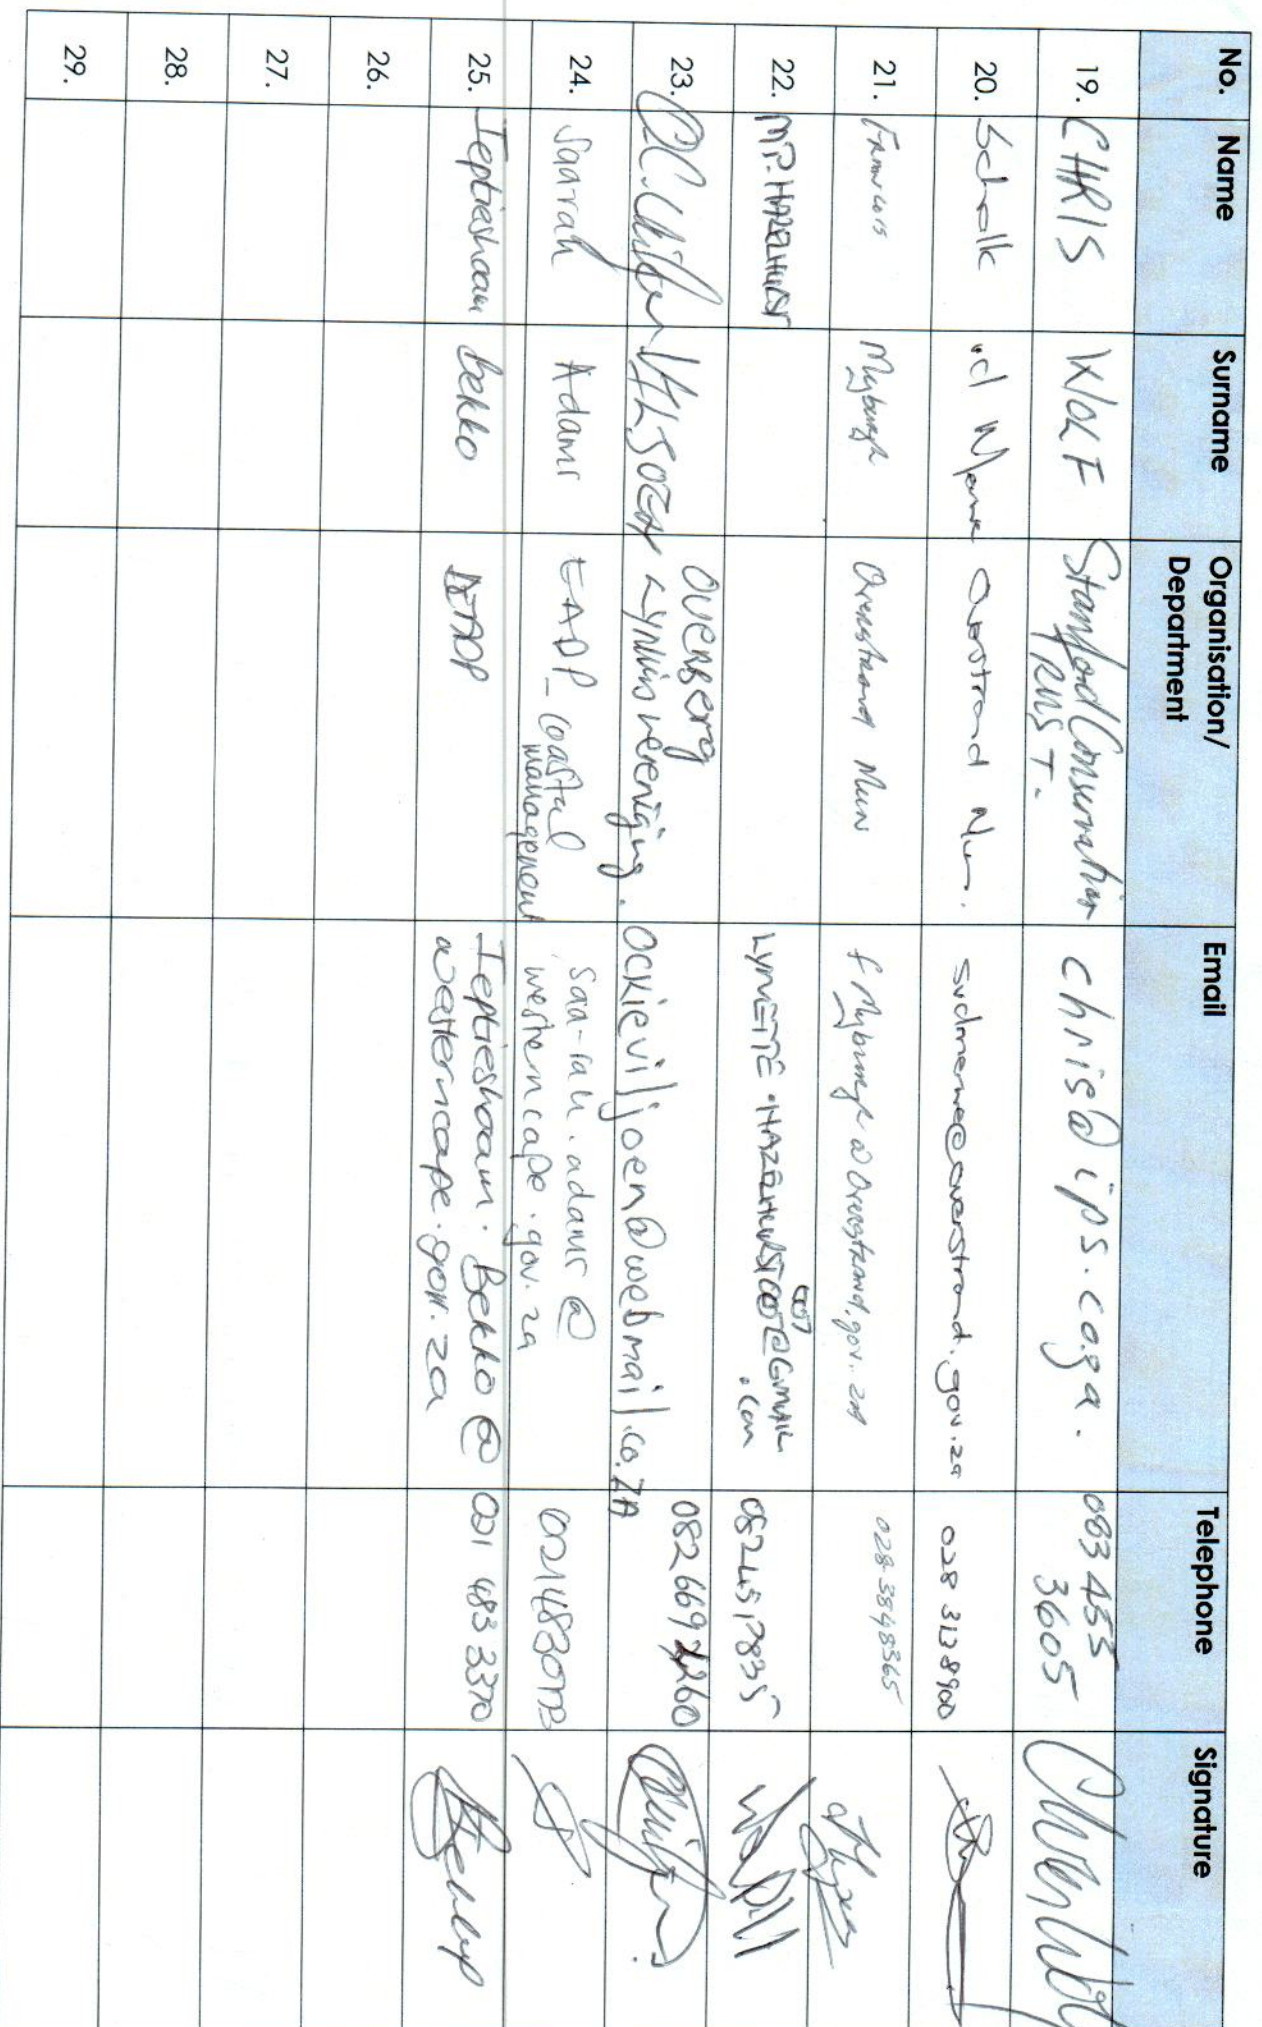 No. Name Surname Organisation/ Department Email Telephone Signature
19. CHRIS WOLF Stanford Conservation TRUST. chris@ips.co.ga. 083 455 3605
20. Schalk vd Merwe Overstrand Mun. svdmerwe@overstrand.gov.za 028 313 8900
21. Francois Myburgh Overstrand Mun fmyburgh@overstrand.gov.za 028 3848365
22. MP. HAZELHURST LYNETTE.HAZELHURST007@GMAIL.com 0824517835
23. VILJOEN OVERBERG Lynvisvereniging. ockieviljoen@webmail.co.ZA 082 669 2260
24. Saarah Adams EADP_Coastal management saa-rah.adams@westerncape.gov.za
25. Ieptieshaam Bekko DEADP Ieptieshaam.Bekko@westerncape.gov.za 021 483 3370
26.
27.
28.
29.